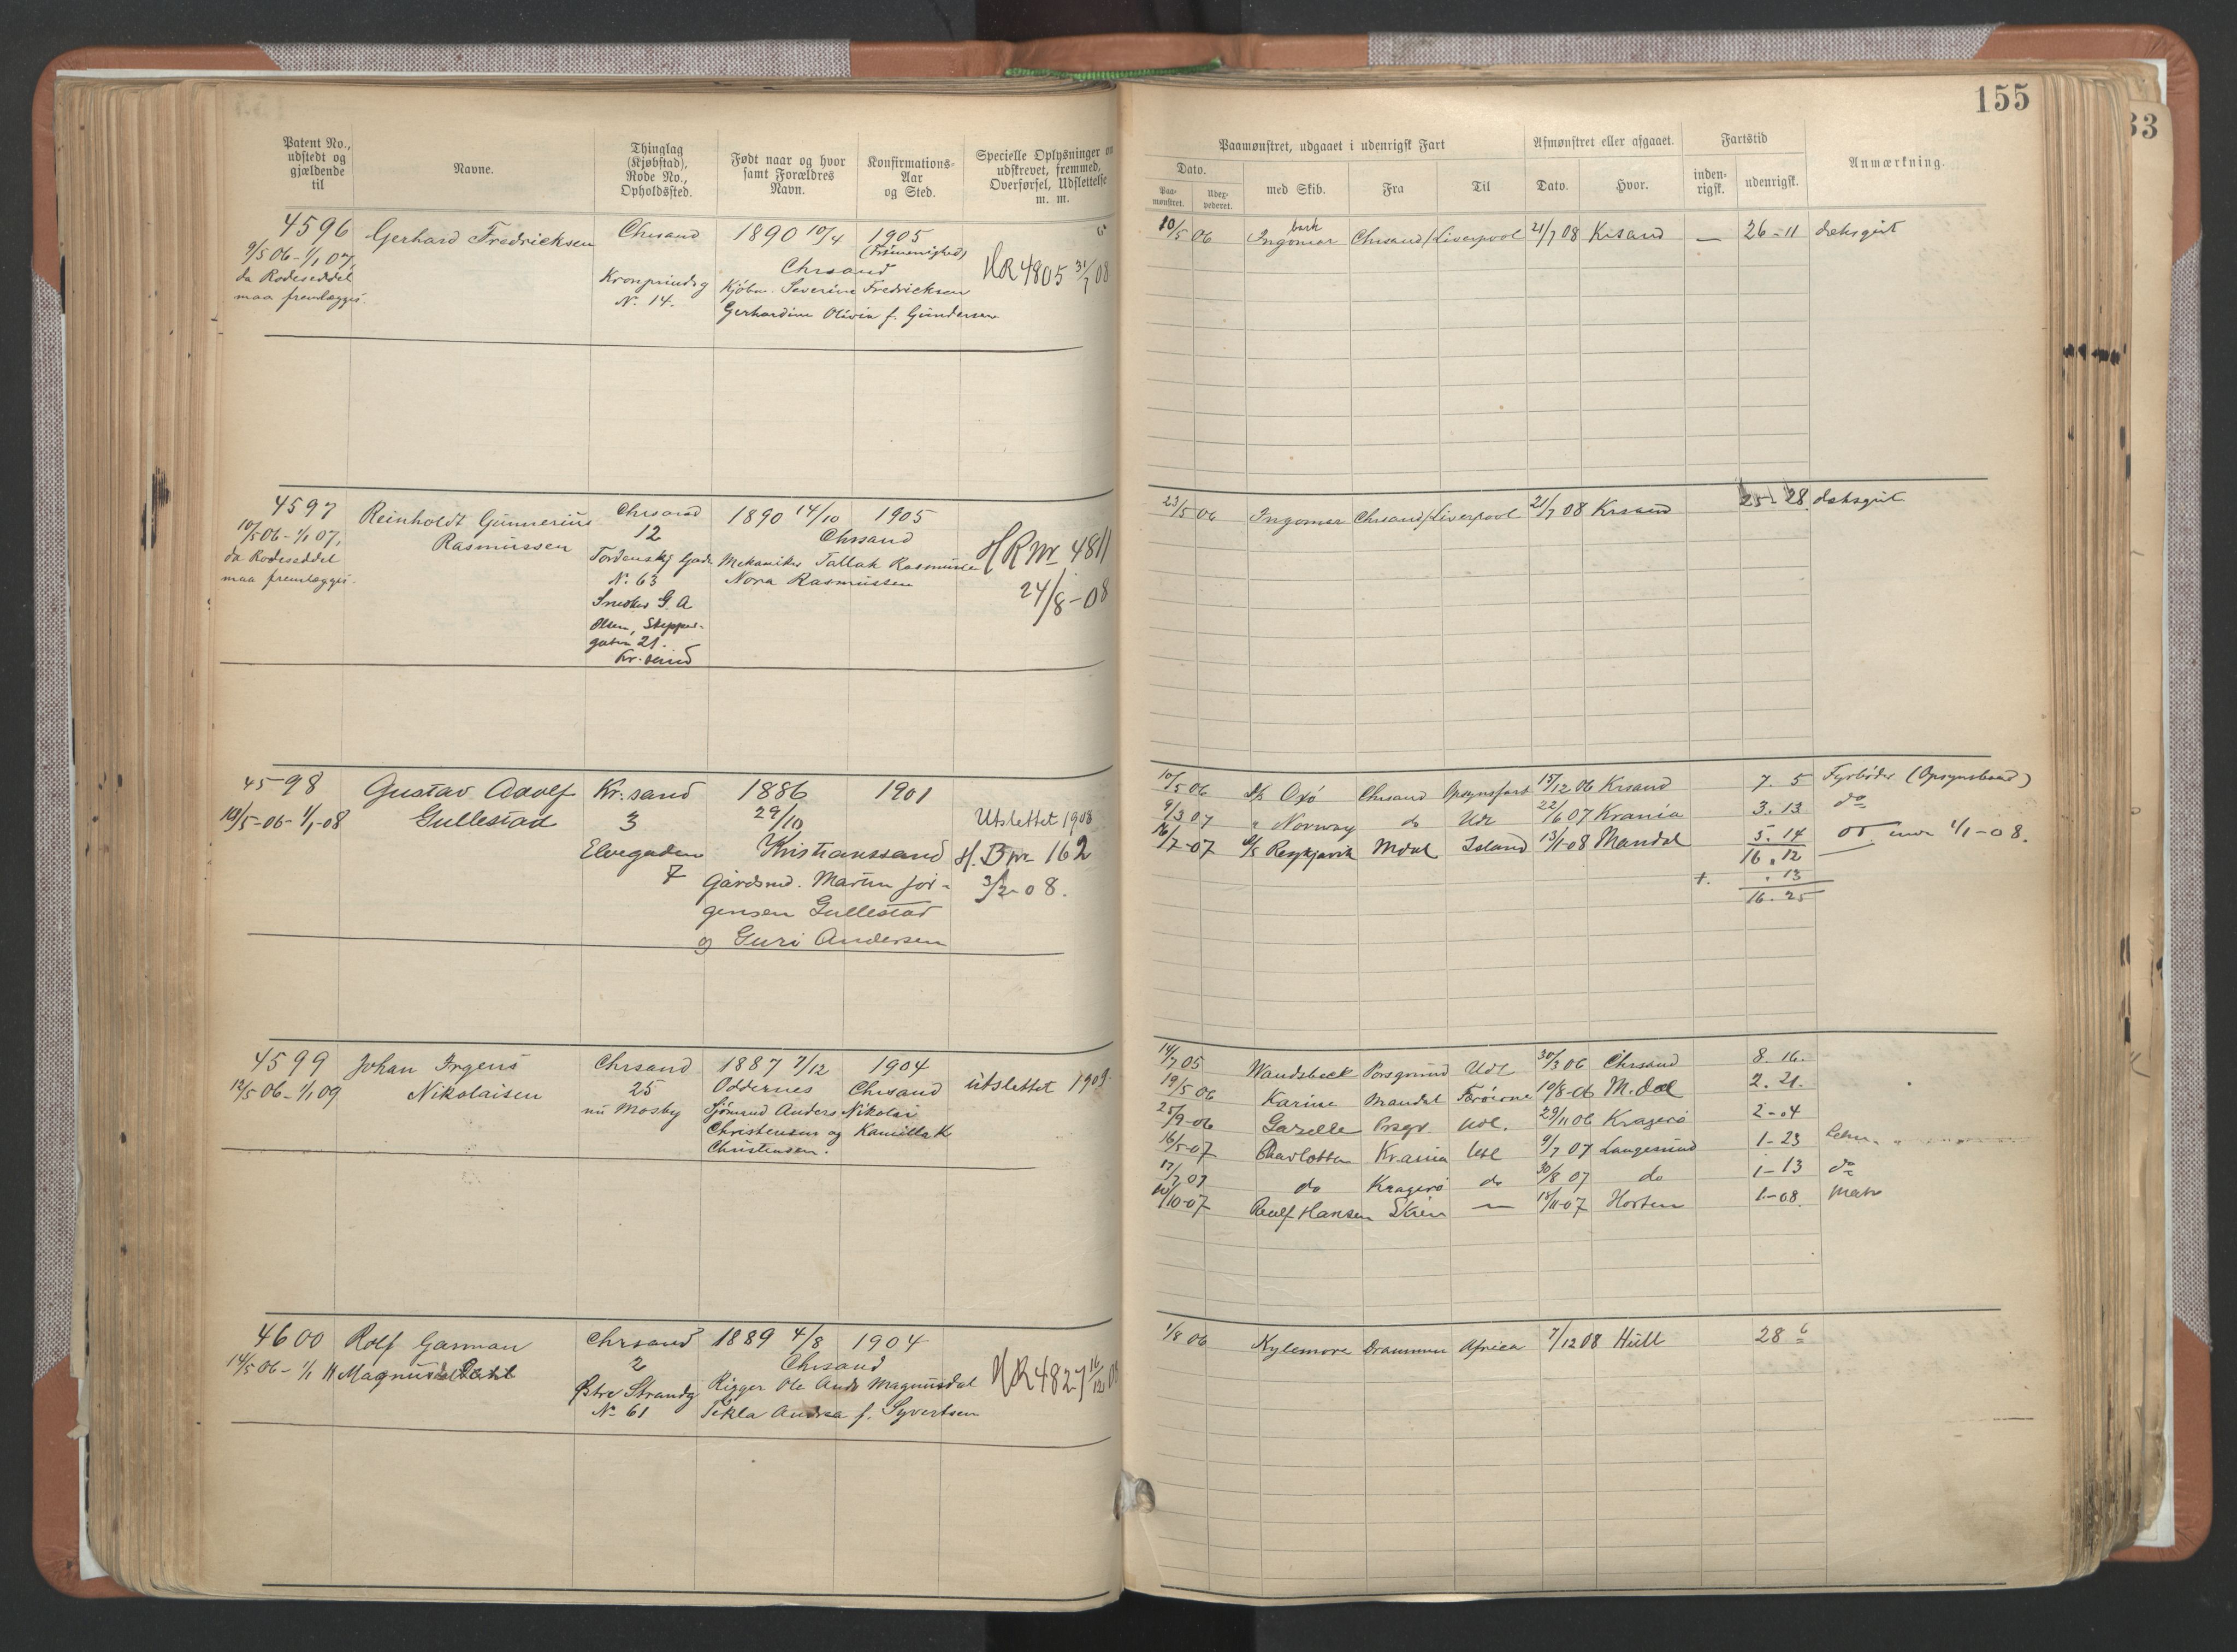 155
33
Patent No., udstedt og gjældende til
Navne.
Thinglag (Kjøbstad), Rode No., Opholdssted.
Født naar og hvor samt Forældres Navn.
Konfirmations-Aar og Sted.
Specielle Oplysninger om udskrevet, fremmed, Overførsel, Udslettelse m. m.
Paamønstret, udgaaet i udenrigsk Fart
Dato.
Paa-mønstret.
Udex-pederet.
med Skib.
Fra
Til
Afmønstret eller afgaaet.
Dato.
Hvor.
Fartstid
inden-rigsk.
udenrigsk.
Anmærkning.
4596 Gerhard Fredricksen Chrsand 1890 10/4 1905
9/5 06 - 1/1 07,
da Rodeseddel
maa fremlægges.
(Frimenighed)
Chrsand
Kronprindsg
N. 14.
Kjøbm. Severin Fredricksen
Gerhardine Olivia f. Gundersen
HR 4805 31/7 08
10/5 06 bark Ingomar Chrsand / Liverpool 21/7 08 Krsand — 26 - 11 dæksgut
4597 Reinholdt Gunnerius Chrsand 1890 14/10 1905
10/5 06 - 1/1 07,
da Rodeseddel
maa fremlægges.
Rasmussen
12
Chrsand
Tordenskj Gade
N. 63
Mekaniker Tallak Rasmussen
Nora Rasmussen
Snedker G. A
Olsen,
gaten 21.
Kr.sand
HR Nr 4811
24/8-08
23/5 06 Ingomar Chrsand / Liverpool 21/7 08 Krsand 25-28 dæksgut
4598 Gustav Adolf Kr.sand 1886 1901
10/5-06 - 1/1-08 Gullestad 3 29/10
Elvegaden
7
Kristianssand
Gårdsmd. Martin Jør-
gensen Gullestad
og Guri Andersen
Utslettet 1908
H. B nr 162
3/2-08.
10/5 06 d/s Oxö Chrsand Opsynsfart 15/12 06 Krsand 7. 5 Fyrbøder (Opsynsbaad)
9/3 07 " Norway do Udl 22/6 07 Krania 3. 13 do
16/7-07 d/s Reykjavik Mdal Island 13/1-08 Mandal 5. 14 1/1-08.
16. 12
+. . 13
16. 25
4599 Johan Irgens Chrsand 1887 7/12 1904
12/5 06 - 1/1 09 Nikolaisen 25 Oddernes Chrsand
nu Mosby
Sjömand Anders Nikolai
Christensen og Kamilla K
Christensen.
utslettet 1909.
14/7 05 Wandsbeck Porsgrund Udl 30/3 06 Chrsand 8. 16.
19/5 06 Karine Mandal 10/8-06 M.dal 2. 21.
25/9-06 Gazelle Prsgr. Udl. 29/11 06 Kragerö 2-04
16/5-07 Charlotta Krania Udl 9/7 07 Langesund 1-23
17/7 07 do Kragerö do 30/8 07 do 1-13 do
10/10-07 Adolf Hansen Skien — 18/11-07 Horten 1-08. Matr
4600 Rolf Garman Chrsand 1889 4/8 1904
14/5 06 - 1/1 11 Magnusdal 2 Chrsand
Østre Strandg
N. 61
Rigger Ole Ands Magnusdal
Tekla Andrea f. Syvertsen
HR 4827 16/12 08
1/8 06 Kylemore Drammen Africa 7/12 08 Hull 28 6